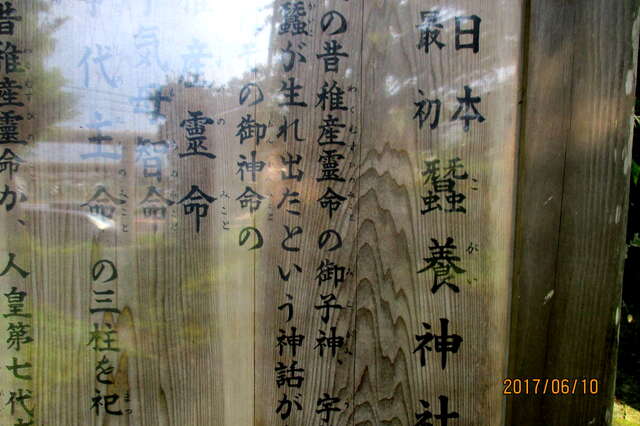 日本
最初
蠶養神社
の昔稚産靈命の御子神、宇
蠶が生れ出たという神話が
の御神命の
産靈命
命
代主命の三柱を祀
昔稚産靈命か、人皇第七代
2017/06/10